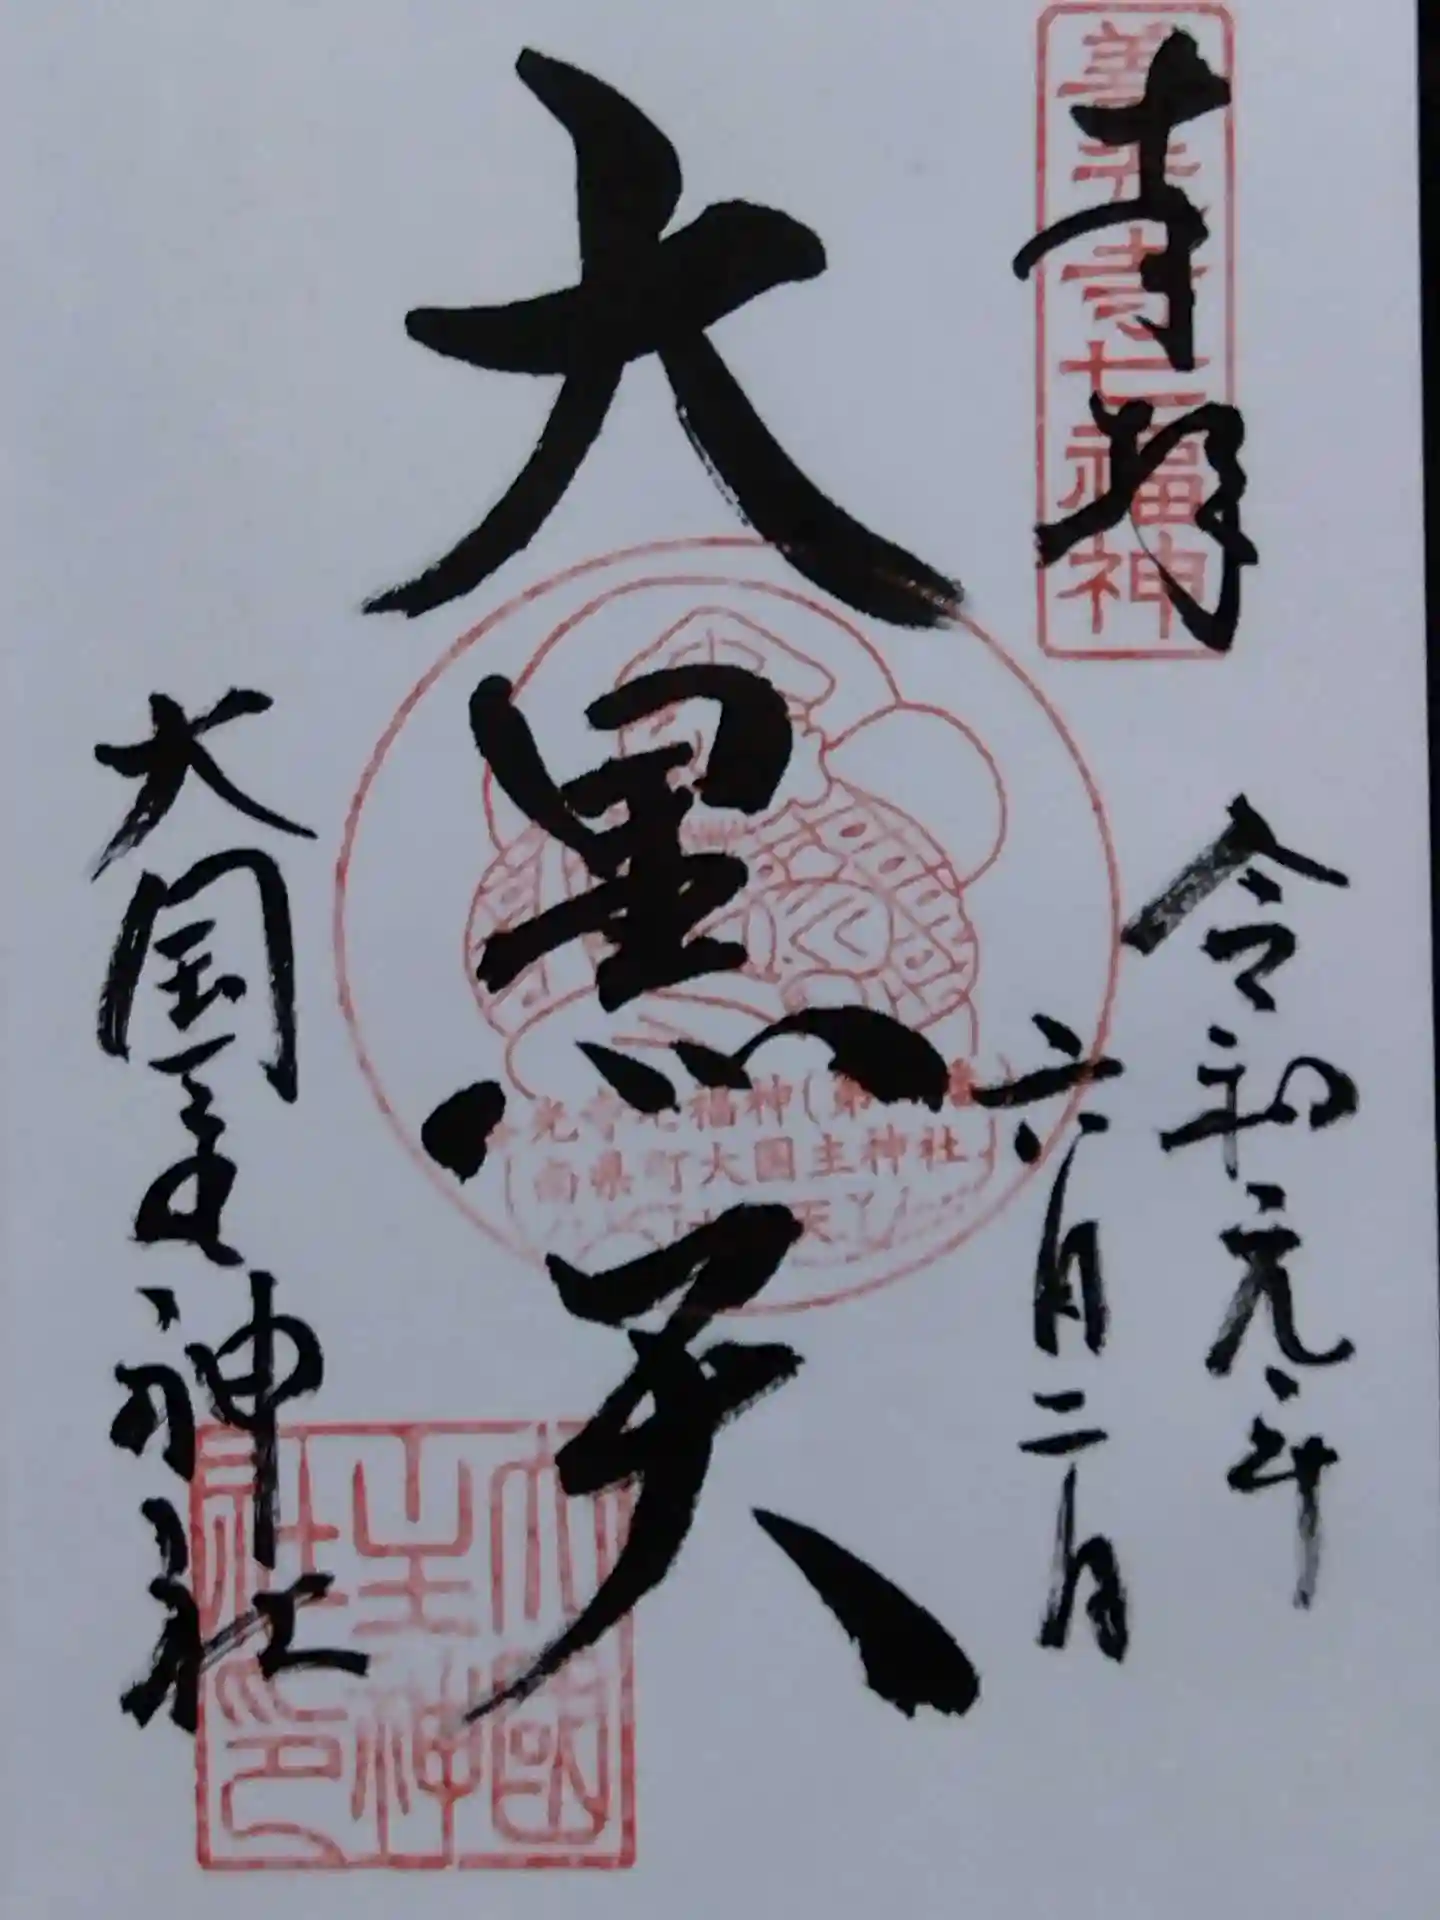 奉拝
善光寺七福神
令和元年
六月二日
大黒天
光寺七福神(第
南県町大国主神社
天
大国主神社
大國主神社印